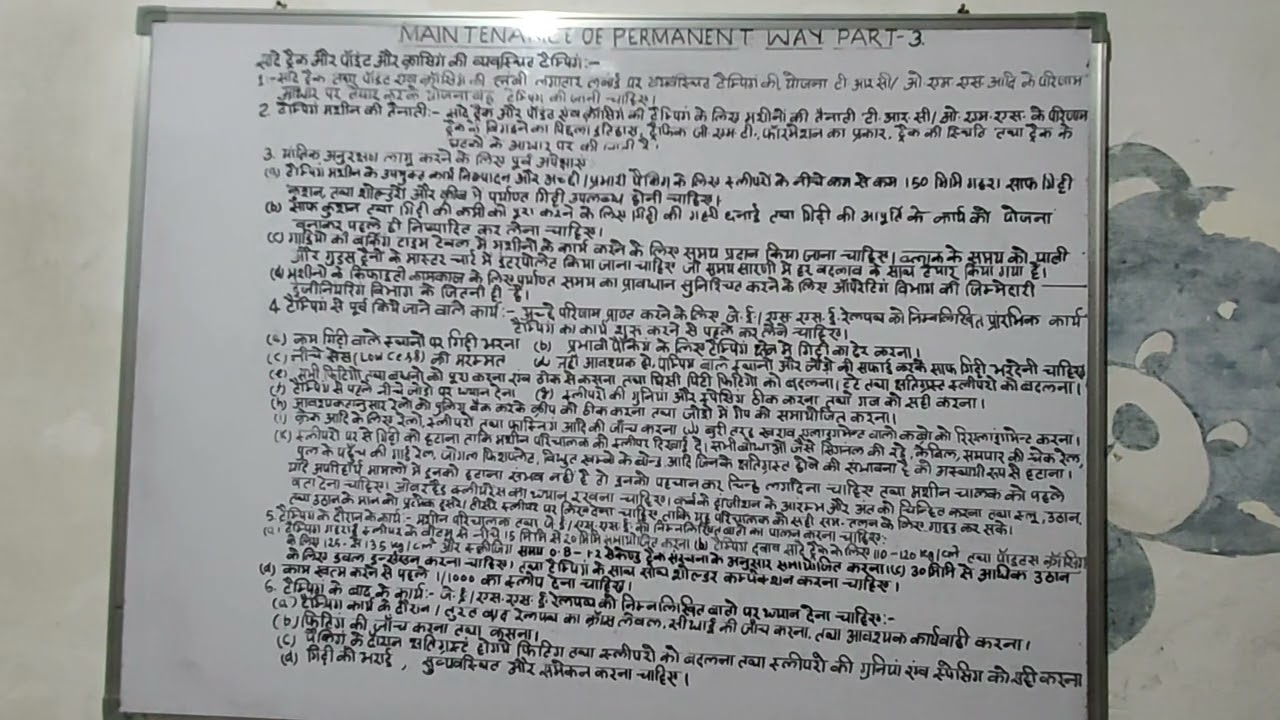 MAINTENANCE OF PERMANENT WAY PART-3.
सादे ट्रैक और पॉइंट और क्रासिंग की व्यवस्थित टैम्पिंग:-
1:- सादे ट्रैक तथा पॉइंट एवं क्रॉसिंग की लम्बी लगातार लम्बाई पर व्यवस्थित टैम्पिंग की योजना टी आर सी/ ओ एम एस आदि के परिणाम
आधार पर तैयार करके योजना बद्ध टैम्पिंग की जानी चाहिए।
2. टैम्पिंग मशीन की तैनाती:- सादे ट्रैक और पॉइंट एवं क्रॉसिंग की टैम्पिंग के लिए मशीनों की तैनाती टी. आर. सी/ ओ. एम. एस. के परिणाम
ट्रैक के बिगड़ने का पिछला इतिहास, ट्रैफिक जी. एम. टी., फॉरमेशन का प्रकार, ट्रैक की स्थिति तथा ट्रैक के
घटकों के आधार पर की जाती है।
3. यांत्रिक अनुरक्षण लागू करने के लिए पूर्व अपेक्षाएं
(a) टैम्पिंग मशीन के उपयुक्त कार्य निष्पादन और अच्छी/प्रभावी पैकिंग के लिए स्लीपरों के नीचे कम से कम 150 मिमि गहरा साफ गिट्टी
कुशन तथा शोल्डरों और क्रीब में पर्याप्त गिट्टी उपलब्ध होनी चाहिए।
(b) साफ कुशन तथा गिट्टी की कमी को पूरा करने के लिए गिट्टी की गहरी छनाई तथा गिट्टी की आपूर्ति के कार्य की योजना
बनाकर पहले ही निष्पादित कर लेना चाहिए।
(c) गाड़ियों की वर्किंग टाइम टेबल में मशीनों के कार्य करने के लिए समय प्रदान किया जाना चाहिए। ब्लाक के समय को यात्री
और गुड्स ट्रेनों के मास्टर चार्ट में इंटरपोलेट किया जाना चाहिए जो समय सारणी में हर बदलाव के साथ तैयार किया गया है।
(d) मशीनों के किफायती कामकाज के लिए पर्याप्त समय का प्रावधान सुनिश्चित करने के लिए ऑपरेटिंग विभाग की जिम्मेदारी
इंजीनियरिंग विभाग के जितनी ही है।
4. टैम्पिंग से पूर्व किये जाने वाले कार्य:- अच्छे परिणाम प्राप्त करने के लिए जे.ई./ एस. एस. ई. रेलपथ को निम्नलिखित प्रारंभिक कार्य
टैम्पिंग का कार्य शुरू करने से पहले कर लेने चाहिए।
(a) कम गिट्टी वाले स्थानों पर गिट्टी भरना (b) प्रभावी पैकिंग के लिए टैम्पिंग क्षेत्र में गिट्टी का ढेर करना।
(c) नीचे सेस (Low Cess) की मरम्मत (d) जहाँ आवश्यक हो, पम्पिंग वाले स्थानों और जोड़ों की सफाई करके साफ गिट्टी भरदेनी चाहिए
(e) सभी फिटिंगों तथा बंधनों को पूरा करना एंव ठीक से कसना तथा घिसी पिटी फिटिंगों को बदलना। टूटे तथा क्षतिग्रस्त स्लीपरों को बदलना।
(f) टैम्पिंग से पहले नीचे जोड़ों पर ध्यान देना (g) स्लीपरों की गुनिया और स्पेसिंग ठीक करना तथा गेज को सही करना।
(h) आवश्यकतानुसार रेलों को पुलिंग बैक करके क्रीप को ठीक करना तथा जोड़ों में गैप को समायोजित करना।
(i) क्रेक आदि के लिए रेलों, स्लीपरों तथा फास्निंग आदि की जाँच करना (j) बुरी तरह खराब एलाइनमेन्ट वालों कर्वो को रिएलाइनमेन्ट करना।
(k) स्लीपरों पर से गिट्टी को हटाना ताकि मशीन परिचालक को स्लीपर दिखाई दे। सभी बाधाओं जैसे सिगनल की रॉड, केबिल, समपार की चेक रेल,
पुल के पहुँच की गार्ड रेल, जॉगल फिशप्लेट, विद्युत खम्बो के बोन्ड आदि जिनके क्षतिग्रस्त होने की संभावना है को अस्थायी रूप से हटाना।
यदि अपरिहार्य मामलो में इनको हटाना संभव नहीं है तो इनको पहचान कर चिन्ह लगादेना चाहिए तथा मशीन चालक को पहले
बता देना चाहिए। ओवरहेड क्लीयरेंस का ध्यान रखना चाहिए। कर्व के ट्रांजीशन के आरम्भ और अंत को चिन्हित करना तथा स्लू, उठान
तथा उठान के मान को प्रत्येक दूसरे/तीसरे स्लीपर पर लिख देना चाहिए ताकि यह परिचालक को सही सम-तलन के लिए गाइड कर सके।
5. टैम्पिंग के दौरान के कार्य:- मशीन परिचालक तथा जे.ई./ एस. एस. ई. को निम्नलिखित बातों का पालन करना चाहिए:
(a) टैम्पिंग गहराई स्लीपर के बॉटम से नीचे 15 मिमि से 20 मिमि समायोजित करना (b) टैम्पिंग दबाव सादे ट्रैक के लिए 110-120 kg/cm² तथा पॉइंटस क्रॉसिंग
के लिए 125 से 135 kg/cm² और स्क्वीजिंग समय 0.8-1.2 सैकेण्ड ट्रैक संरचना के अनुसार समायोजित करना। (c) 30 मिमि से अधिक उठान
के लिए डबल इन्सर्शन करना चाहिए। तथा टैम्पिंग के साथ साथ शोल्डर कम्पेक्शन करना चाहिए।
(d) काम खत्म करने से पहले 1/1000 का स्लोप देना चाहिए।
6. टैम्पिंग के बाद के कार्य:- जे.ई./ एस. एस. ई. रेलपथ को निम्नलिखित बातों पर ध्यान देना चाहिए:-
(a) टैम्पिंग कार्य के दौरान/ तुरंत बाद रेलपथ का क्रॉस लेवल, सीधाई की जाँच करना, तथा आवश्यक कार्यवाही करना।
(b) फिटिंग की जाँच करना तथा कसना।
(c) पैकिंग के दौरान क्षतिग्रस्त होगये फिटिंग तथा स्लीपरों को बदलना तथा स्लीपरों की गुनियां एंव स्पेसिंग को सही करना
(d) गिट्टी की भराई, सुव्यवस्थित और समेकन करना चाहिए।